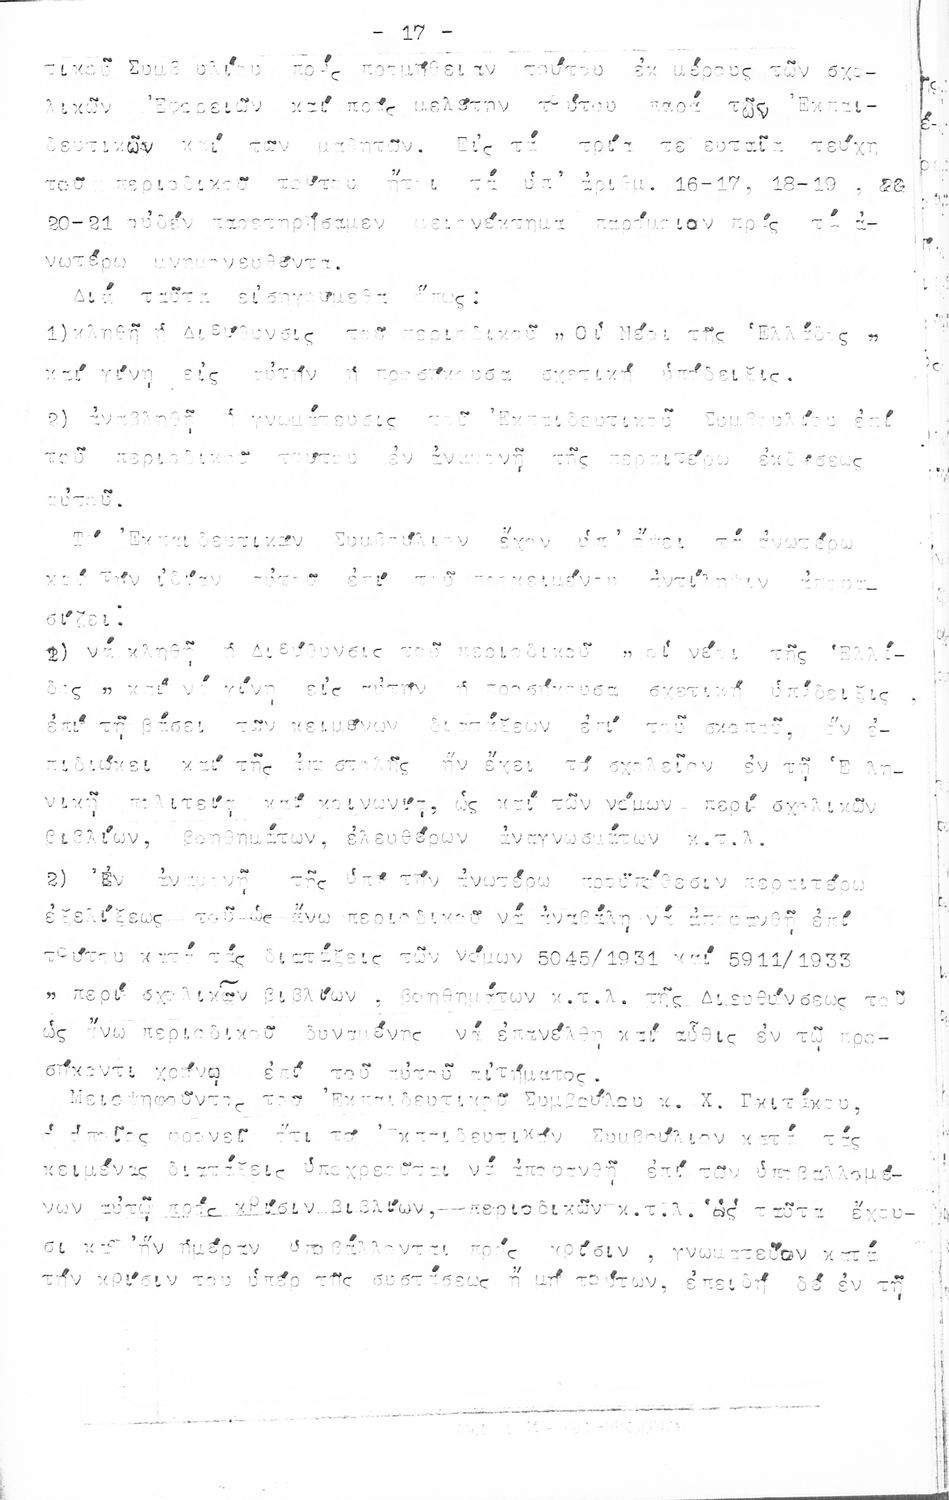 - 17 -
τικοῦ Συμβουλίου πρός προμήθειαν τούτου ἐκ μέρους τῶν σχο-
λικῶν Ἐφορειῶν καί πρός μελέτην τούτου παρά τῶν Ἐκπαι-
δευτικῶν καί τῶν μαθητῶν. Εἰς τά τρία τελευταῖα τεύχη
τοῦ περιοδικοῦ τούτου ἤτοι τά ὑπ' ἀριθμ. 16-17, 18-19 ,
20-21 οὐδέν παρετηρήσαμεν μειονέκτημα παρόμοιον πρός τά ἀ-
νωτέρω μνημονευθέντα.
Διά ταῦτα εἰσηγούμεθα ὅπως:
1)κληθῇ ἡ Διεύθυνσις τοῦ περιοδικοῦ „ Οἱ Νέοι τῆς Ἑλλάδος „
καί γίνῃ εἰς αὐτήν ἡ προσήκουσα σχετική ὑπόδειξις.
2) ἀναβληθῇ ἡ γνωμάτευσις τοῦ Ἐκπαιδευτικοῦ Συμβουλίου ἐπί
τοῦ περιοδικοῦ τούτου ἐν ἀναμονῇ τῆς περαιτέρω ἐκδόσεως
αὐτοῦ.
Τό Ἐκπαιδευτικόν Συμβούλιον ἔχον ὑπ' ὄψει τά ἀνωτέρω
καί τήν ἰδίαν αὐτοῦ ἐπί τοῦ προκειμένου ἀντίληψιν ἀποφα-
σίζει:
1) νά κληθῇ ἡ Διεύθυνσις τοῦ περιοδικοῦ „ οἱ νέοι τῆς Ἑλλά-
δος „ καί νά γίνῃ εἰς αὐτήν ἡ προσήκουσα σχετική ὑπόδειξις ,
ἐπί τῇ βάσει τῶν κειμένων διατάξεων ἐπί τοῦ σκοποῦ, ὅν ἐ-
πιδιώκει καί τῆς ἀποστολῆς ἥν ἔχει τό σχολεῖον ἐν τῇ Ἑλλη-
νικῇ πολιτείᾳ καί κοινωνίᾳ, ὡς καί τῶν νόμων περί σχολικῶν
βιβλίων, βοηθημάτων, ἐλευθέρων ἀναγνωσμάτων κ.τ.λ.
2) Ἐν ἀναμονῇ τῆς ὑπό τήν ἀνωτέρω προϋπόθεσιν περαιτέρω
ἐξελίξεως τοῦ ὡς ἄνω περιοδικοῦ νά ἀναβάλῃ νά ἀποφανθῇ ἐπί
τούτου κατά τάς διατάξεις τῶν νόμων 5045/1931 καί 5911/1933
„ περί σχολικῶν βιβλίων , βοηθημάτων κ.τ.λ. τῆς Διευθύνσεως τοῦ
ὡς ἄνω περιοδικοῦ δυναμένης νά ἐπανέλθῃ καί αὖθις ἐν τῷ προ-
σήκοντι χρόνῳ ἐπί τοῦ αὐτοῦ αἰτήματος.
Μειοψηφοῦντος τοῦ Ἐκπαιδευτικοῦ Συμβούλου κ. Χ. Γκιτάκου,
ὁ ὁποῖος φρονεῖ ὅτι τό Ἐκπαιδευτικόν Συμβούλιον κατά τάς
κειμένας διατάξεις ὑποχρεοῦται νά ἀποφανθῇ ἐπί τῶν ὑποβαλλομέ-
νων αὐτῷ πρός κρίσιν βιβλίων, περιοδικῶν κ.τ.λ. ὡς ταῦτα ἔχου-
σι καθ' ἥν ἡμέραν ὑποβάλλονται πρός κρίσιν , γνωματεῦον κατά
τήν κρίσιν του ὑπέρ τῆς συστάσεως ἤ μή τούτων, ἐπειδή δέ ἐν τῇ